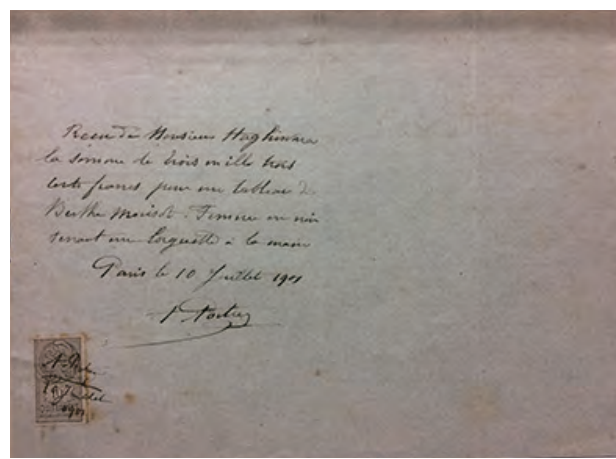 Recu de Monsieur Haghiwara
la somme de trois mille trois
cents francs pour un tableau de
Berthe Morisot. Femme en noir
tenant une lorgnette à la main
Paris le 10 Juillet 1901
1901